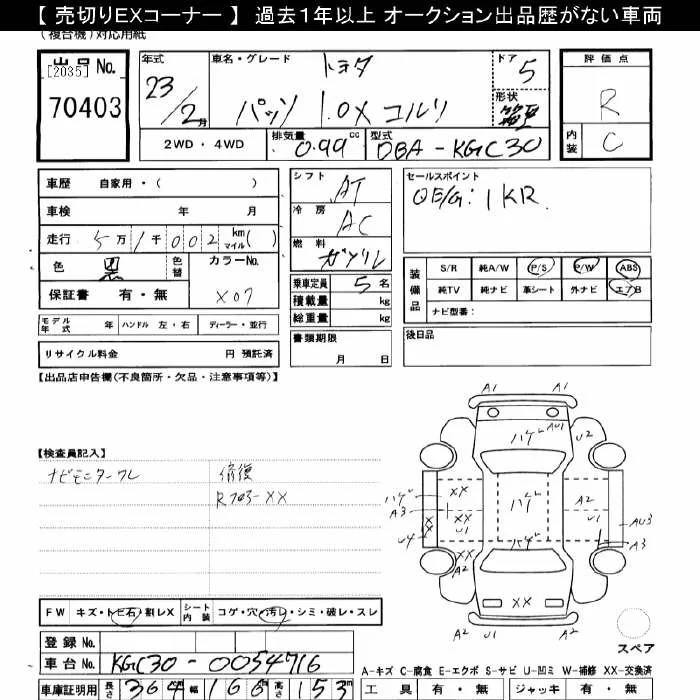 【 売切りEXコーナー 】 過去1年以上 オークション出品歴がない車両
(複合機)対応用紙
出品 No.
[2035]
70403
年式
23/2月
車名・グレード
トヨタ
パッソ 1.0X コルリ
ドア
5
形状
評価点
R
内装
C
2WD ・ 4WD
排気量
0.99 cc
型式
DBA-KGC30
車歴 自家用・( )
車検 年 月
走行 5万1千002 km マイル ( )
色 黒 色替
カラーNo.
X07
保証書 有・無
シフト
AT
冷房
AC
燃料
ガソリン
乗車定員 5 名
積載量 kg
総重量 kg
セールスポイント
OE/G:1KR.
装備品
S/R 純A/W P/S P/W ABS
純TV 純ナビ 革シート 外ナビ エアB
ナビ型番:
モデル年式 年 ハンドル 左・右 ディーラー・並行
リサイクル料金 円 預託済
書類期限
月 日
後日品
【出品店申告欄(不良箇所・欠品・注意事項等)】
【検査員記入】
ナビモニターワレ
修復
Rフロア-XX
A1 A1
ハゲ AU1 U2
XX
ハゲ A3
ハゲ
A2
XX XX U1
U4
U1 AU3
A3
ハゲ
XX A2
XX
A2 U1 A2
スペア
FW キズ・トビ石・割レX
シート内装 コゲ・穴・汚レ・シミ・破レ・スレ
登録 No.
車台 No. KGC30-0054716
車庫証明用 長さ 364 cm 幅 166 高さ 153 cm
A-キズ C-腐食 E-エクボ S-サビ U-凹ミ W-補修 XX-交換済
工具 有・無 ジャッキ 有・無